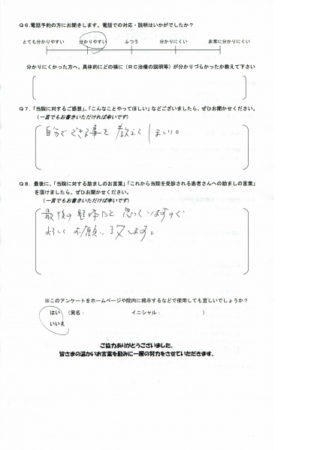 Q6.電話予約の方にお聞きします。電話での対応・説明はいかがでしたか?
とても分かりやすい 分かりやすい ふつう 分かりにくい 非常に分かりにくい
分かりにくかった方へ、具体的にどの様に(RC治療の説明等)が分かりづらかったか教えて下さい
Q7.「当院に対するご感想」、「こんなことやってほしい」などございましたら、ぜひお聞かせください。
(一言でもお書きいただければ幸いです)
自分でできる事を教えてほしい。
Q8.最後に、「当院に対する励ましのお言葉」「これから当院を受診される患者さんへの励ましの言葉」
を頂けましたら、ぜひお聞かせください。
(一言でもお書きいただければ幸いです)
最後の
思っていますので
よろしくお願い致します。
※このアンケートをホームページや院内に掲示するなどで使用しても宜しいでしょうか?
はい (実名: イニシャル: )
いいえ
ご協力ありがとうございました。
皆さまの温かいお言葉を励みに一層の努力をさせていただきます。